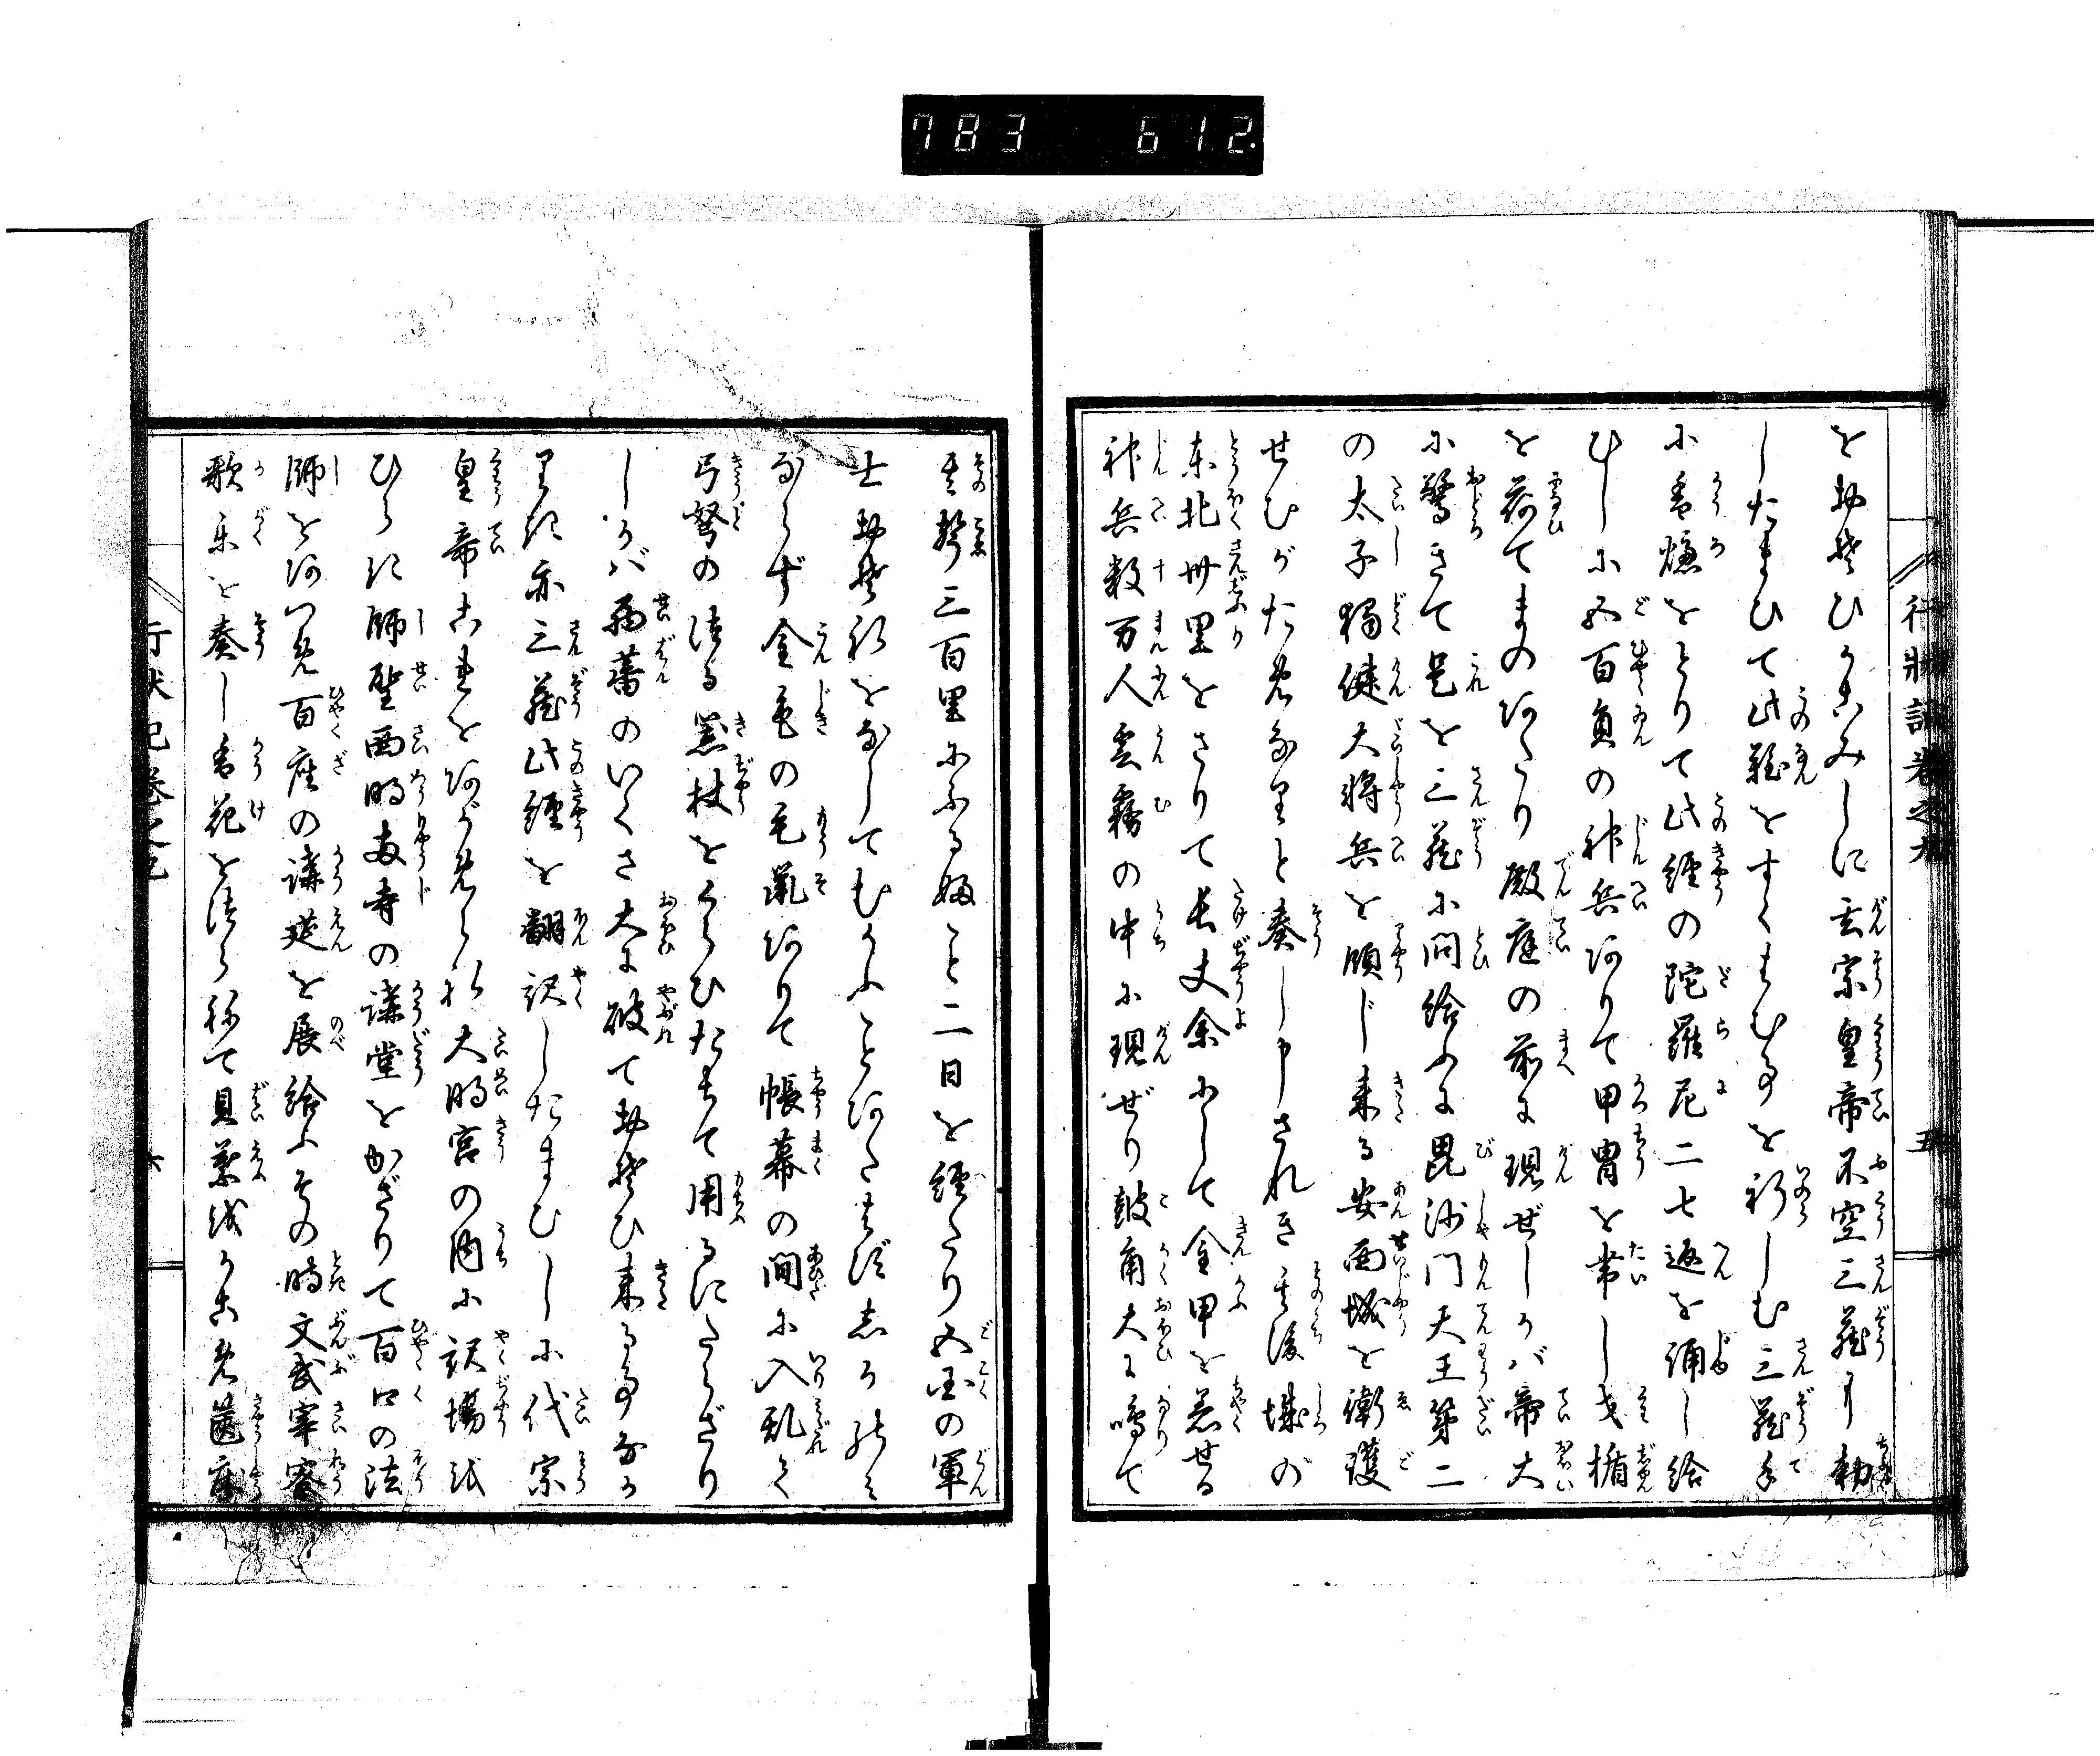 783 612.
行状記巻之九 五
を劫殺ひうちみしに玄宗皇帝不空三蔵に勅
したまひて此難をすくはむ事を祈しむ三蔵手
に香爐をとりて此經の陀羅尼二七遍を誦し給
ひしに五百員の神兵ありて甲冑を帯し戈楯
を荷てまのあたり殿庭の前に現ぜしかバ帝大
に驚きて是を三蔵に問給ふに毘沙門天王第二
の太子獨健大将兵を領じ来る安西城を衛護
せむがためなりと奏し申されき其後城の
東北卅里をさりて長丈余にして金甲を着せる
神兵数万人雲霧の中に現ぜり鼓角大に鳴て
其聲三百里にふる婦こと二日を經たり五国の軍
士
ならず金色の毛鼠ありて帳幕の間に入乱て
弓弩の弦る器杖をくらひたちて用るにたらざり
しかバ西蕃のいくさ大に破て劫殺ひ来る事なか
りき亦三蔵此經を翻訳したまひしに代宗
皇帝これをあがめられ大明宮の内に訳場を
ひらき師聖西明両寺の講堂をかざりて百口の法
師をあつめ百座の講莚を展給ふその時文武宰寮
歌楽を奏し香花を
行状記巻之九 六